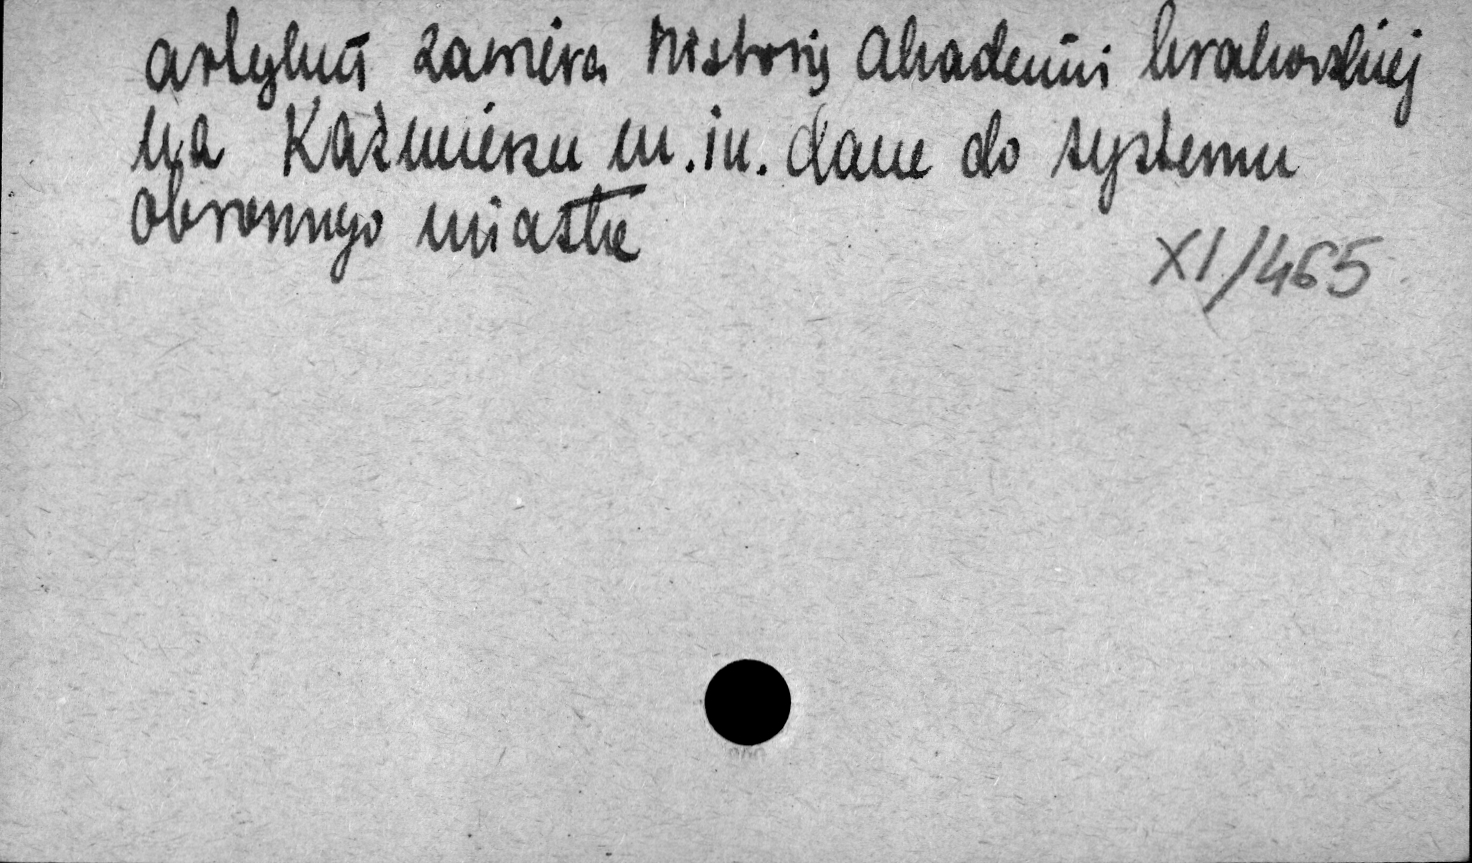 artykuł zawiera historię Akademii krakowskiej
na Kaźmierzu m.in. dane do systemu
obronnego miasta
XI/465